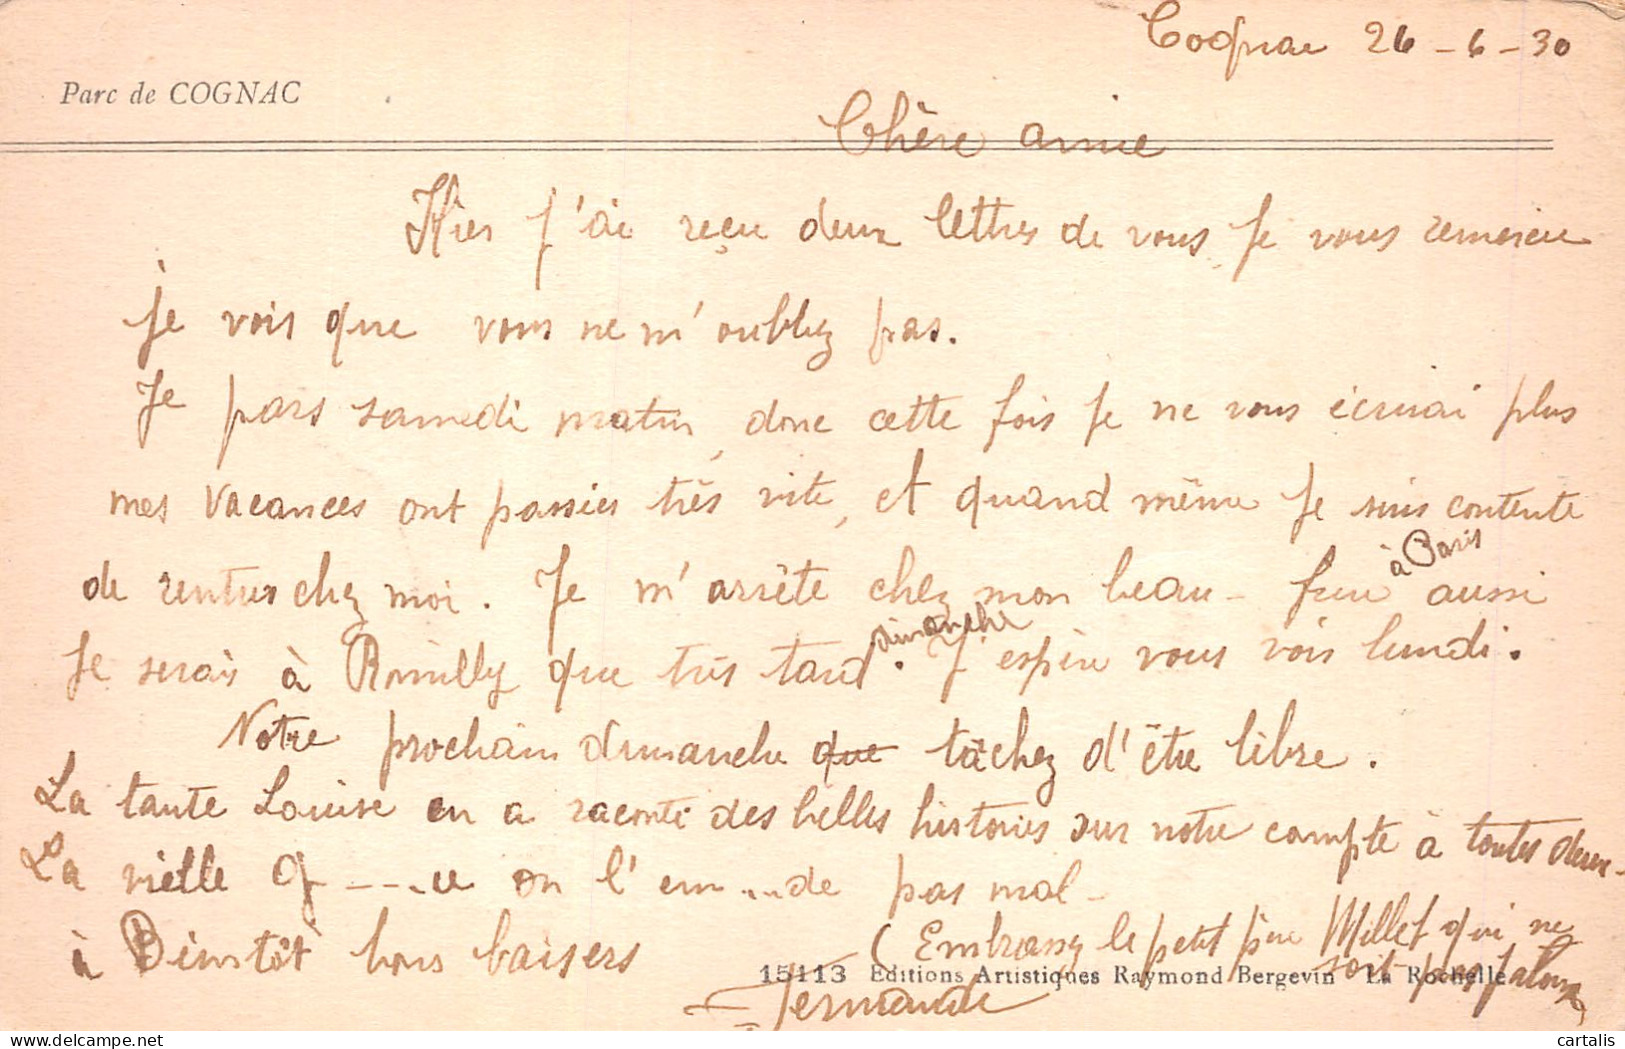 Cognac 26-6-30
Parc de COGNAC
Chère amie
Hier j'ai reçu deux lettres de vous, je vous remercie
je vois que vous ne m'oubliez pas.
Je pars samedi matin, donc cette fois je ne vous écrirai plus
mes vacances ont passées très vite, et quand même je suis contente
de rentrer chez moi. Je m'arrête chez mon beau-frère à Paris aussi
je serais à Romilly que très tard dimanche. J'espère vous voir lundi.
Notre prochain dimanche que tâchez d'être libre.
La tante Louise en a raconté des belles histoires sur notre compte à toutes deux-
La vielle G----ce on l'em...de pas mal-
à Bientôt bons baisers
(Embrassez le petit père Millet qui ne
soit pas jaloux)
15113 Editions Artistiques Raymond Bergevin La Rochelle
Fernande
cartalis
delcampe.net